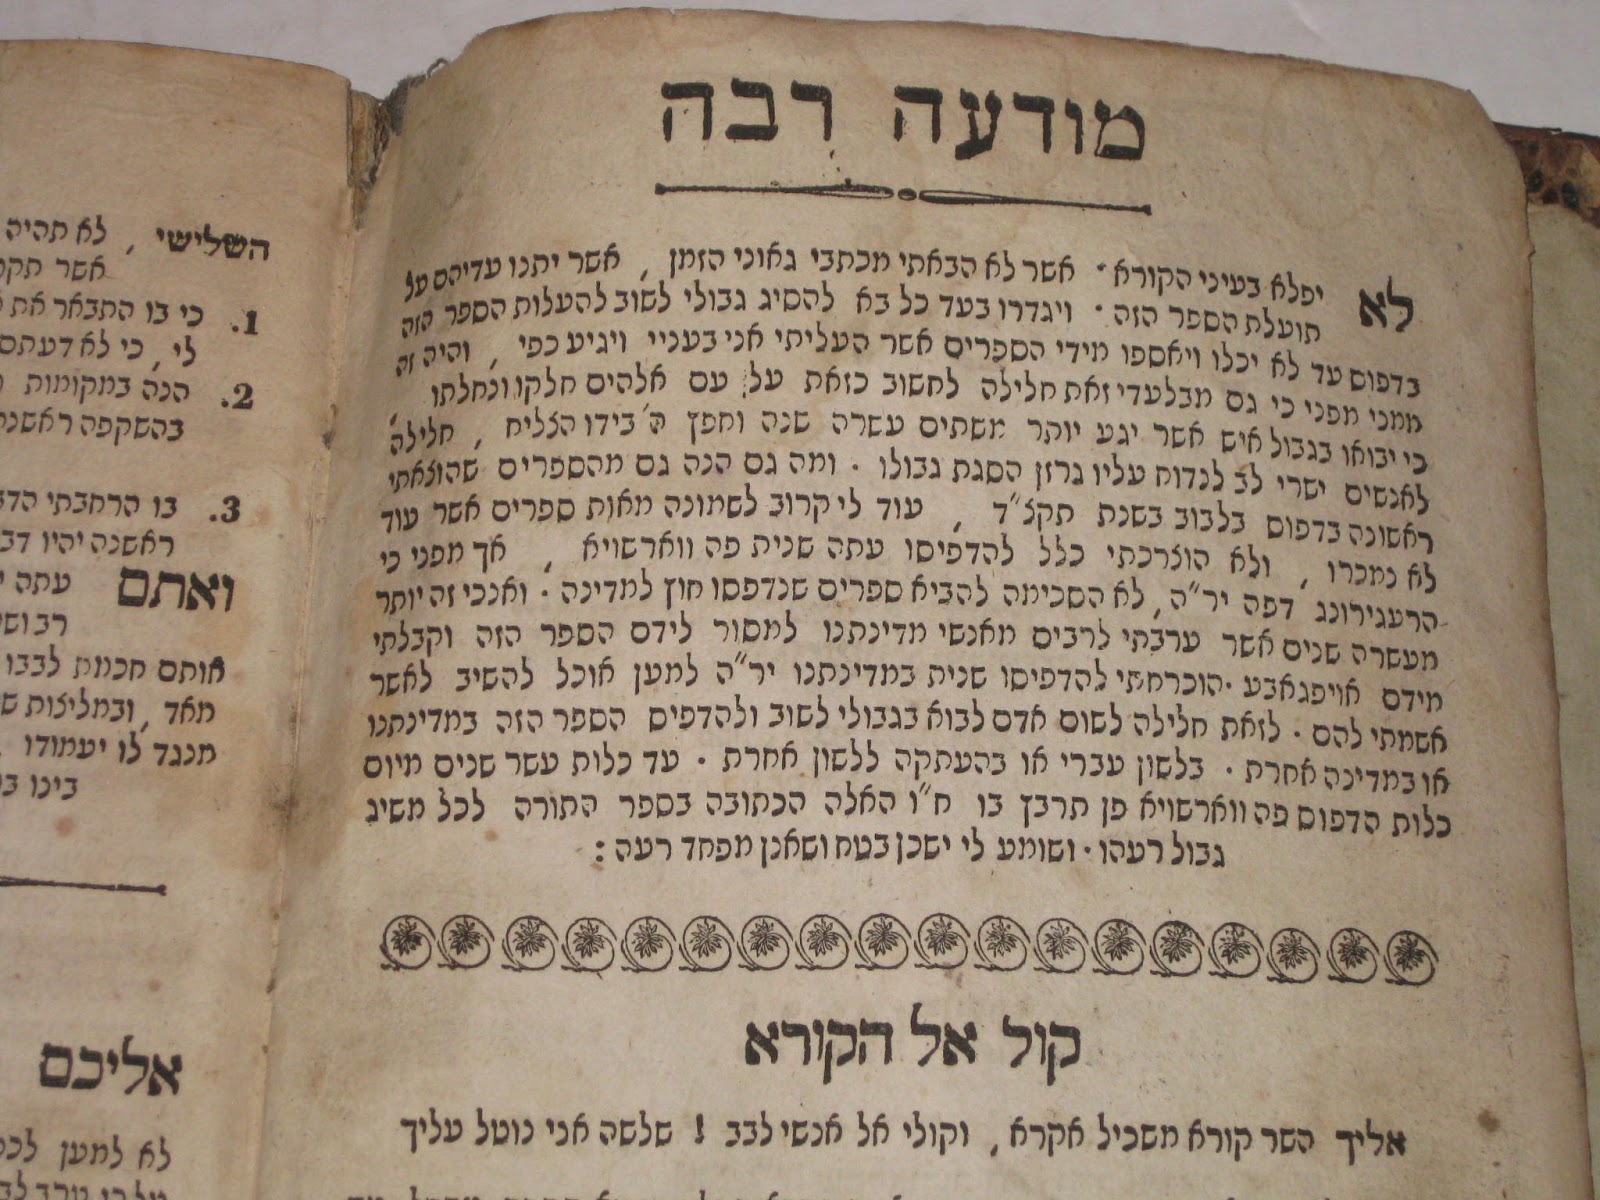 מודעה רבה
לא יפלא בעיני הקורא · אשר לא הבאתי מכתבי גאוני הזמן , אשר יתנו עדיהם על
תועלת הספר הזה · ויגדרו בעד כל בא להסיג גבולי לשוב להעלות הספר הזה
בדפוס עד לא יכלו ויאספו מידי הספרים אשר העליתי אני בעניי ויגיע כפי , והיה זה
ממני מפני כי גם מבלעדי זאת חלילה לחשוב כזאת על עם אלהים חלקו ונחלתו ,
כי יבואו בגבול איש אשר יגע יותר משתים עשרה שנה וחפץ ה' בידו הצליח , חלילה
לאנשים ישרי לב לנדוח עליו גרזן הסגת גבולו · ומה גם הנה גם מהספרים שהוצאתי
ראשונה בדפוס בלבוב בשנת תקצ״ד , עוד לי קרוב לשמונה מאות ספרים אשר עוד
לא נמכרו , ולא הוצרכתי כלל להדפיסו עתה שנית פה ווארשויא , אך מפני כי
הרעגירונג דפה יר״ה , לא הסכימה להביא ספרים שנדפסו חוץ למדינה · ואנכי זה יותר
מעשרה שנים אשר ערבתי לרבים מאנשי מדינתנו למסור לידם הספר הזה וקבלתי
מידם אויפגאבע · הוכרחתי להדפיסו שנית במדינתנו יר״ה למען אוכל להשיב לאשר
אשמתי להם · לזאת חלילה לשום אדם לבוא בגבולי לשוב ולהדפיס הספר הזה במדינתנו
או במדינה אחרת · בלשון עברי או בהעתקה ללשון אחרת · עד כלות עשר שנים מיום
כלות הדפוס פה ווארשויא פן תרבץ בו ח״ו האלה הכתובה בספר התורה לכל משיג
גבול רעהו · ושומע לי ישכן בטח ושאנן מפחד רעה :
קול אל הקורא
אליך השר קורא משכיל אקרא , וקולי אל אנשי לבב ! שלשה אני נוטל עליך
השלישי , לא תהיה
אשר תקר
1. כי בו התבאר את
לי , כי לא דעתם
2. הנה במקומות
בהשקפה ראשנה
3. בו הרחבתי הדב
ראשנה יהיו דב
ואתם עתה
רב ושו
אותם חכמת לבבו
מאד , ובמליצות ש
מנגד לו יעמודו
בינו ב
אליכם
לא למען לכם